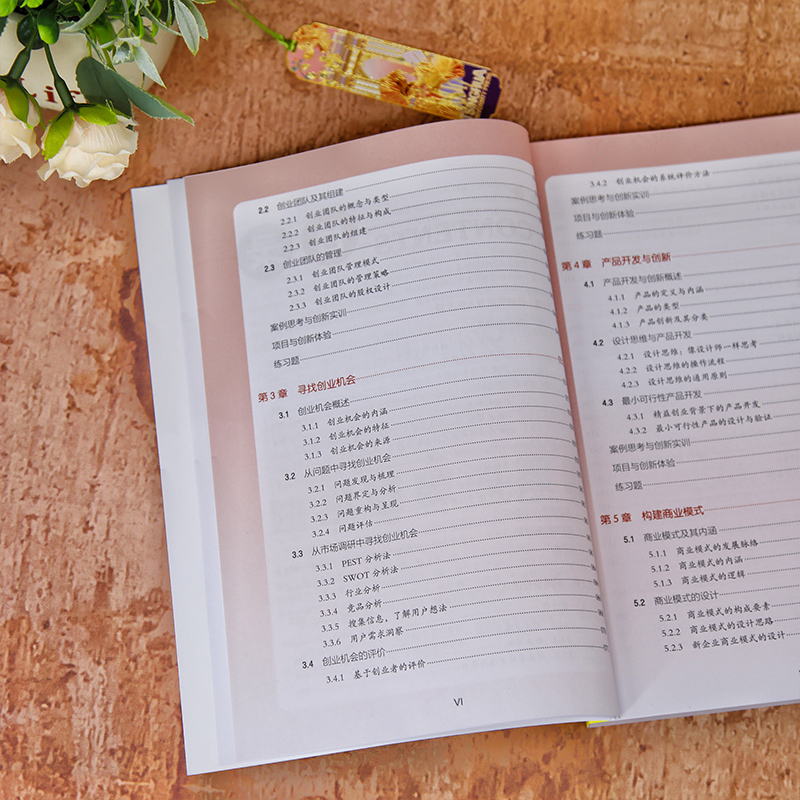 2.2 创业团队及其组建
2.2.1 创业团队的概念与类型
2.2.2 创业团队的特征与构成
2.2.3 创业团队的组建
2.3 创业团队的管理
2.3.1 创业团队管理模式
2.3.2 创业团队的管理策略
2.3.3 创业团队的股权设计
案例思考与创新实训
项目与创新体验
练习题
第 3 章 寻找创业机会
3.1 创业机会概述
3.1.1 创业机会的内涵
3.1.2 创业机会的特征
3.1.3 创业机会的来源
3.2 从问题中寻找创业机会
3.2.1 问题发现与梳理
3.2.2 问题界定与分析
3.2.3 问题重构与呈现
3.2.4 问题评估
3.3 从市场调研中寻找创业机会
3.3.1 PEST 分析法
3.3.2 SWOT 分析法
3.3.3 行业分析
3.3.4 竞品分析
3.3.5 搜集信息，了解用户想法
3.3.6 用户需求洞察
3.4 创业机会的评价
3.4.1 基于创业者的评价
VI
3.4.2 创业机会的系统评价方法
案例思考与创新实训
项目与创新体验
练习题
第 4 章 产品开发与创新
4.1 产品开发与创新概述
4.1.1 产品的定义与内涵
4.1.2 产品的类型
4.1.3 产品创新及其分类
4.2 设计思维与产品开发
4.2.1 设计思维：像设计师一样思考
4.2.2 设计思维的操作流程
4.2.3 设计思维的通用原则
4.3 最小可行性产品开发
4.3.1 精益创业背景下的产品开发
4.3.2 最小可行性产品的设计与验证
案例思考与创新实训
项目与创新体验
练习题
第 5 章 构建商业模式
5.1 商业模式及其内涵
5.1.1 商业模式的发展脉络
5.1.2 商业模式的内涵
5.1.3 商业模式的逻辑
5.2 商业模式的设计
5.2.1 商业模式的构成要素
5.2.2 商业模式的设计思路
5.2.3 新企业商业模式的设计